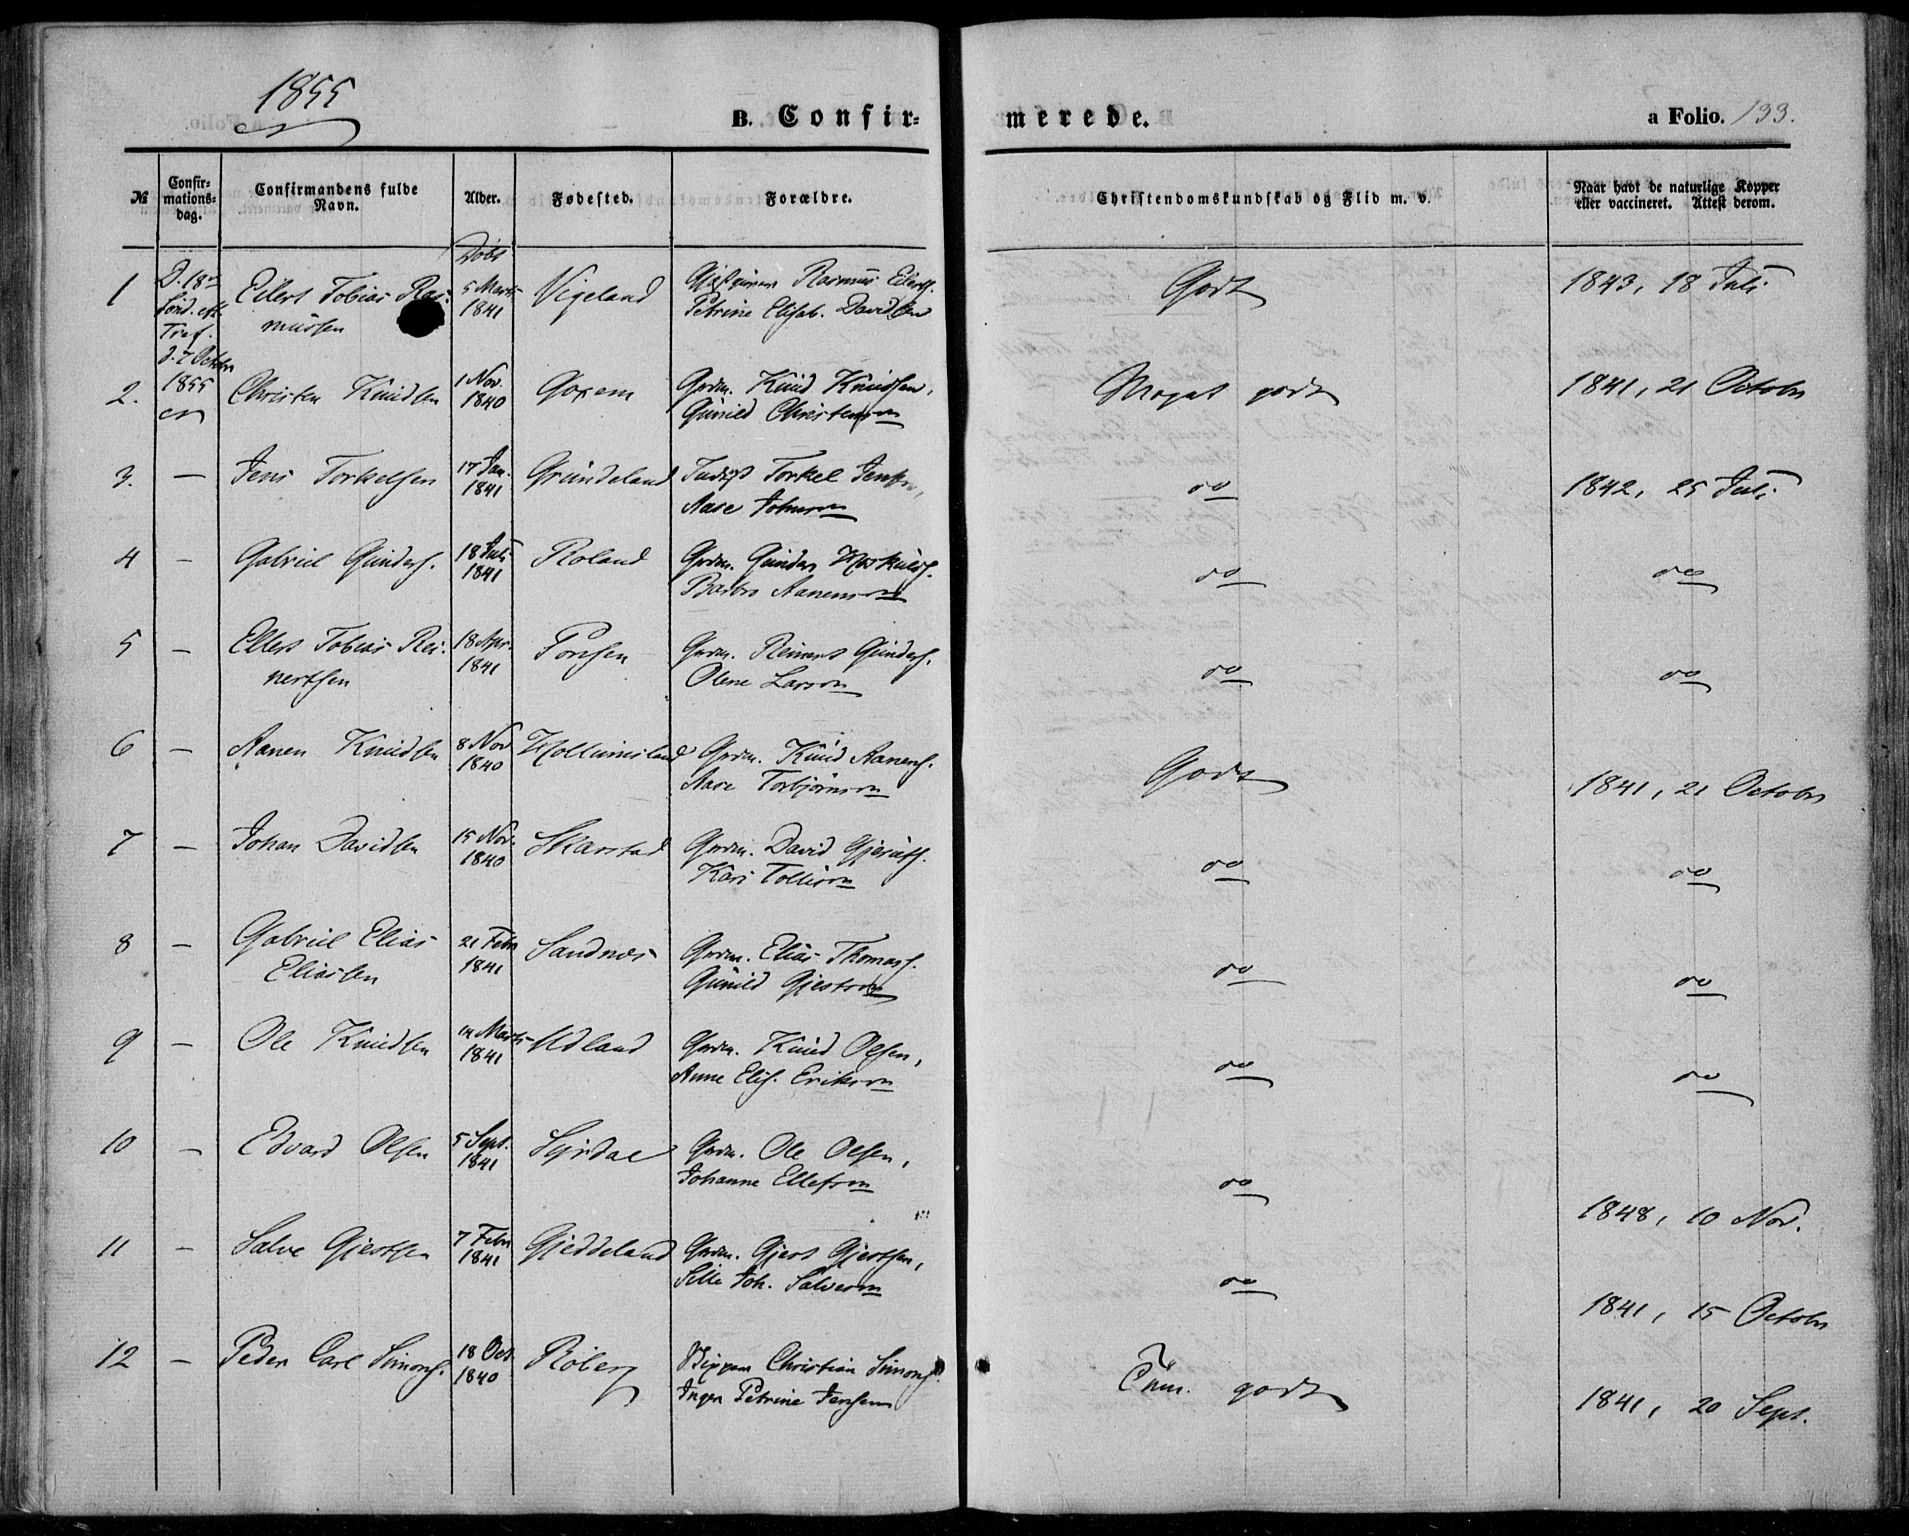 1855
B. Confir-
merede.
a Folio. 133.
№
Confir-
mations-
dag.
Confirmandens fulde
Navn.
Alder.
Fødested.
Forældre.
Christendomskundskab og Flid m. v.
Naar havt de naturlige Kopper
eller vaccineret. Attest derom.
Døbt
1 D. 18de Eilert Tobias Ras- 5 Marts Vigeland Rasmus Eilerts. Godt 1843, 18 Juli
Sönd. eft. mussen 1841 Petrine Elisab. Davidsen
Tref.
d. 7 October
2. 1855 Christen Knudsen 1 Nov. 1840 Gdm. Knud Knudsen, Meget godt 1841, 21 Octobr
Gunild Christensen
3. — Jens Torkelsen 17 Jan. 1841 Grundeland Torkel Jensen, do 1842, 25 Juli
Aase Johnsen
4 — Gabriel Gunders. 18 Juli 1841 Roland Gdm. Gunder do do
Barbro Aanensen
5 — Ellert Tobias Rei- 18 Apr. Gdm. Reinert Gunders. do do
nertsen 1841 Olene Larsen
6 — Aanen Knudsen 8 Nov 1840 Hollumsland Gdm. Knud Aanens. Godt 1841, 21 Octobr
Aase Torbjørnsen
7 — Johan Davidsen 15 Nov. 1840 Skarstad Gdm. David do do
Kari
8 — Gabriel Elias 21 Febr Sandnes Gdm. Elias Thomas. do do
Eliassen 1841 Gunild Gjestsen
9 — Ole Knudsen 14 Marts 1841 Udland Gdm. Knud Olsen, do do
Anne Elis. Eriksen
10 — Edvard Olsen 5 Sept. 1841 Gdm. Ole Olsen, do 1848, 10 Nov.
Johanne Ellefsen
11 — Salve Gjertsen 7 Febr 1841 Gjeddeland Gdm. Gjert Gjertsen, do 1841, 15 Octobr
Sille Joh. Salvesen
12 — Peder Carl Simons. 18 Oct 1840 Röberg Christian Simons. godt 1841, 20 Sept.
Inger Petrine Jensen